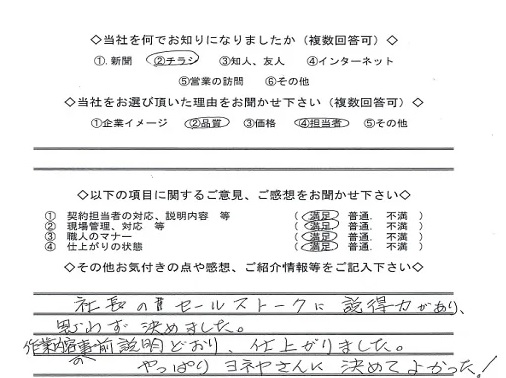 ◇当社を何でお知りになりましたか（複数回答可）◇
①.新聞 ②チラシ ③知人、友人 ④インターネット
⑤営業の訪問 ⑥その他
◇当社をお選び頂いた理由をお聞かせ下さい（複数回答可）◇
①企業イメージ ②品質 ③価格 ④担当者 ⑤その他
◇以下の項目に関するご意見、ご感想をお聞かせ下さい◇
① 契約担当者の対応、説明内容 等 （ 満足. 普通. 不満 ）
② 現場管理、対応 等 （ 満足. 普通. 不満 ）
③ 職人のマナー （ 満足. 普通. 不満 ）
④ 仕上がりの状態 （ 満足. 普通. 不満 ）
◇その他お気付きの点や感想、ご紹介情報等をご記入下さい◇
社長のセールストークに説得力があり、
思わず決めました。
作業内容の事前説明どおり、仕上がりました。
やっぱりヨネヤさんに決めてよかった!